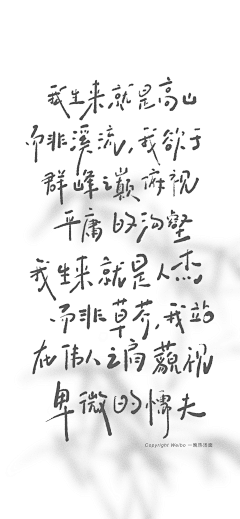 我生来就是高山
而非溪流，我欲于
群峰之巅俯视
平庸的沟壑
我生来就是人杰
而非草芥，我站
在伟人之肩藐视
卑微的懦夫
Copyright Weibo